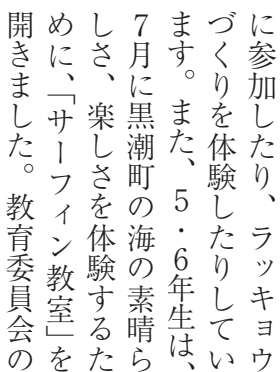 に参加したり、ラッキョウ
づくりを体験したりしてい
ます。また、5・6年生は、
7月に黒潮町の海の素晴ら
しさ、楽しさを体験するた
めに、「サーフィン教室」を
開きました。教育委員会の